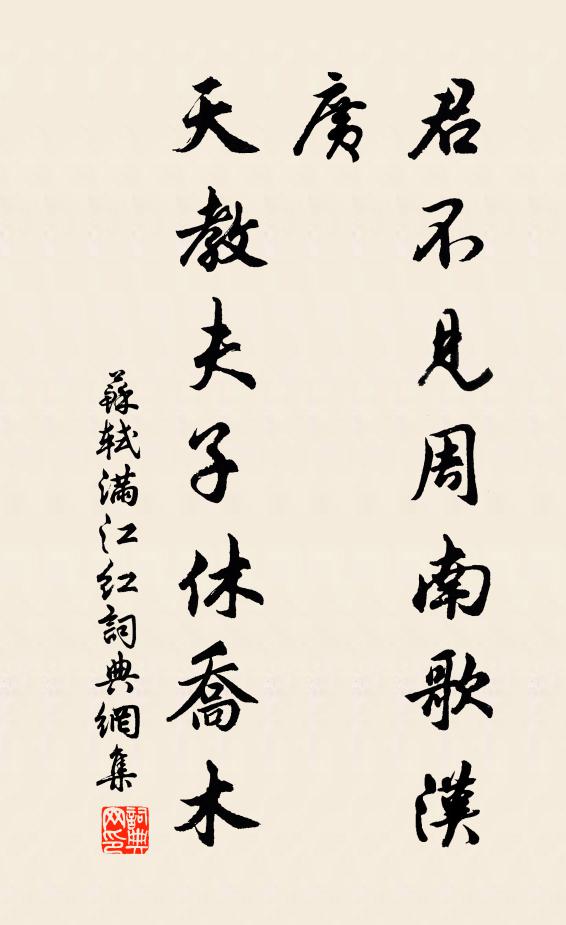 君不見周南歌漢
廣
天教夫子休喬木
蘇軾滿江紅詞典網集
詞典
网印